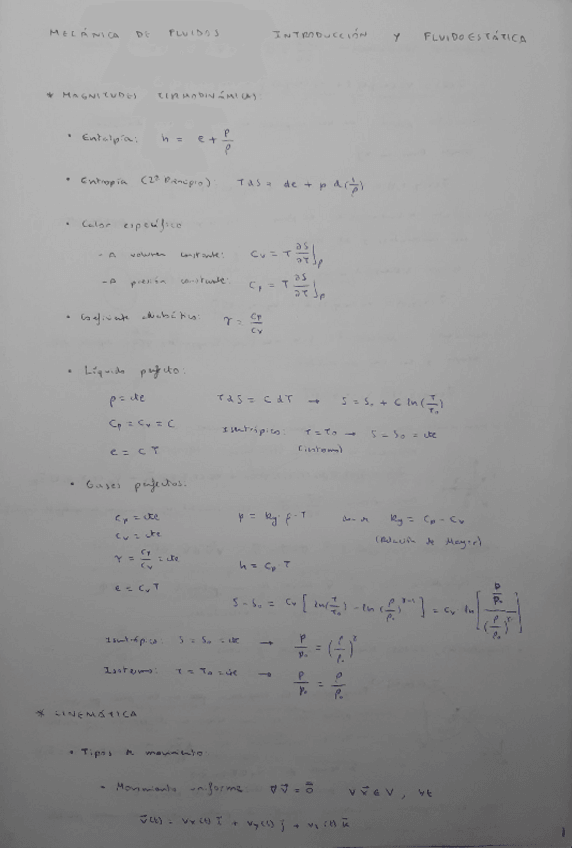 MECÁNICA DE FLUIDOS INTRODUCCIÓN Y FLUIDOESTÁTICA
* MAGNITUDES TERMODINÁMICAS
• Entalpía: h = e + p/ρ
• Entropía (2º Principio): TdS = de + p d(1/ρ)
• Calor específico
- A volumen constante: Cv = T ∂S/∂T]ρ
- A presión constante: Cp = T ∂S/∂T]p
• Coeficiente adiabático: γ = Cp/Cv
• Líquido perfecto:
ρ = cte TdS = C dT → S = S₀ + C ln(T/T₀)
Cp = Cv = C Isentrópico: T = T₀ → S = S₀ = cte
e = C T (isotermo)
• Gases perfectos:
Cp = cte p = Rg·ρ·T donde Rg = Cp - Cv
Cv = cte (Relación de Mayer)
γ = Cp/Cv = cte h = Cp T
e = Cv T
S - S₀ = Cv [ln(T/T₀) - ln(ρ/ρ₀)^(γ-1)] = Cv ln[(p/p₀)/(ρ/ρ₀)^γ]
Isentrópico: S = S₀ = cte → p/p₀ = (ρ/ρ₀)^γ
Isotermo: T = T₀ = cte → p/p₀ = ρ/ρ₀
* CINEMÁTICA
• Tipos de movimiento:
• Movimiento uniforme ∇v⃗ = 0̿ ∀ x⃗ ∈ V, ∀t
v⃗(t) = vx(t) i + vy(t) j + vz(t) k
1